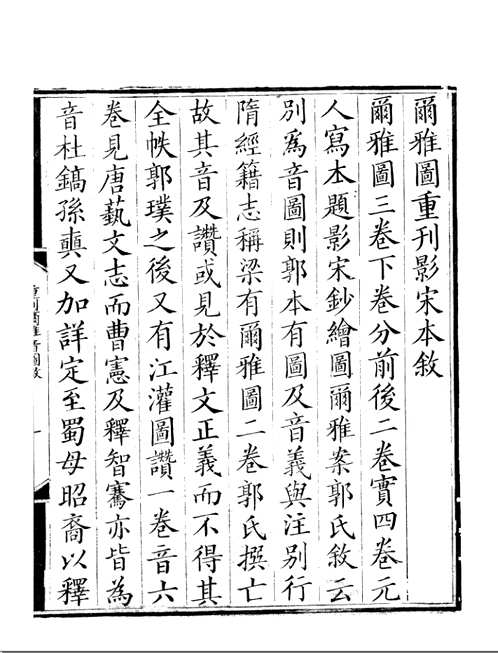 爾雅圖重刊影宋本敘
爾雅圖三卷下卷分前後二卷實四卷元
人寫本題影宋鈔繪圖爾雅案郭氏敘云
別爲音圖則郭本有圖及音義與注別行
隋經籍志稱梁有爾雅圖二卷郭氏撰亡
故其音及讚或見於釋文正義而不得其
全帙郭璞之後又有江灌圖讚一卷音六
卷見唐藝文志而曹憲及釋智騫亦皆為
音杜鎬孫奭又加詳定至蜀母昭裔以釋